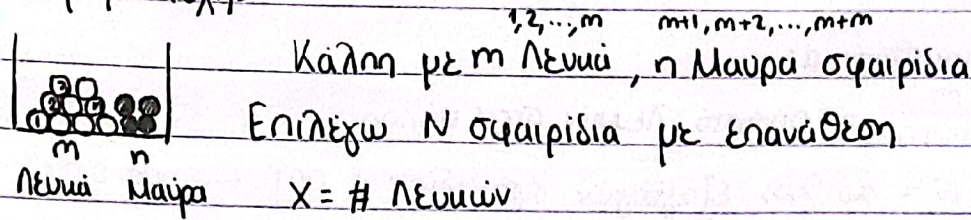 1,2,...,m m+1, m+2,..., m+m
Κάλπη με m Λευκά, n Μαύρα σφαιρίδια
Επιλέγω N σφαιρίδια με επανάθεση
m n
Λευκά Μαύρα X = # Λευκών